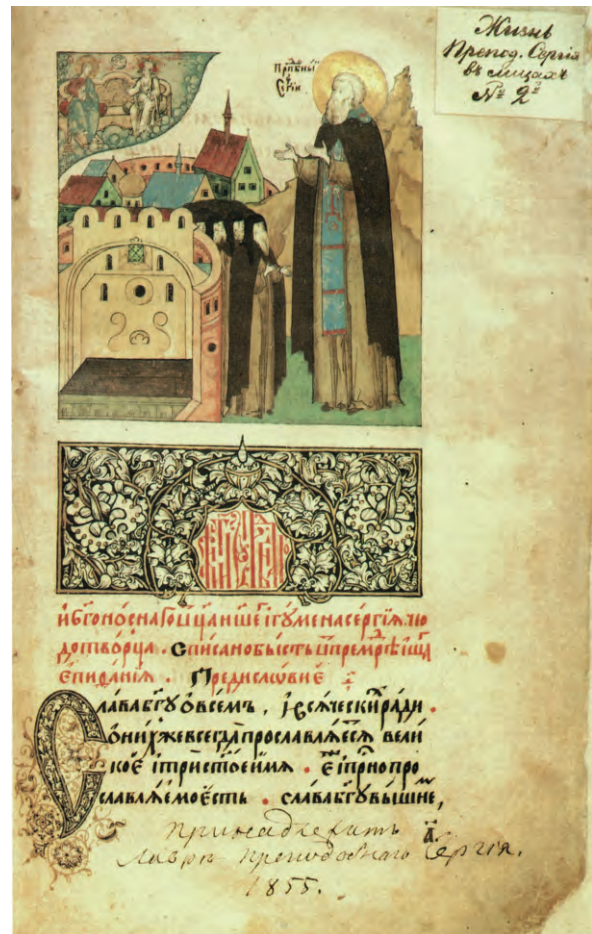 Жизнь
Препод. Сергія
въ лицахъ
№ 2й
Прпⷣбныи
Сергіи
и бгоноснаго ѿца нше҇ ігꙋмена сергїѧ чю
дотворца . Списано бысть ѿ премрⷣѣіша҇
Єпифанїѧ . Предисловиє
Слава бг҃ꙋ ѡ всемъ , і всѧческиⷯ ради .
ѡ ниⷯже всегда прославлѧєсѧ вели
коє і трист҃оє имѧ . єⷤ і прно про
славлѧємо єсть . слава бг҃ꙋ вышне҇ ,
Принадлежитъ
Лавре Преподобнаго Сергія.
а҃.
1855.